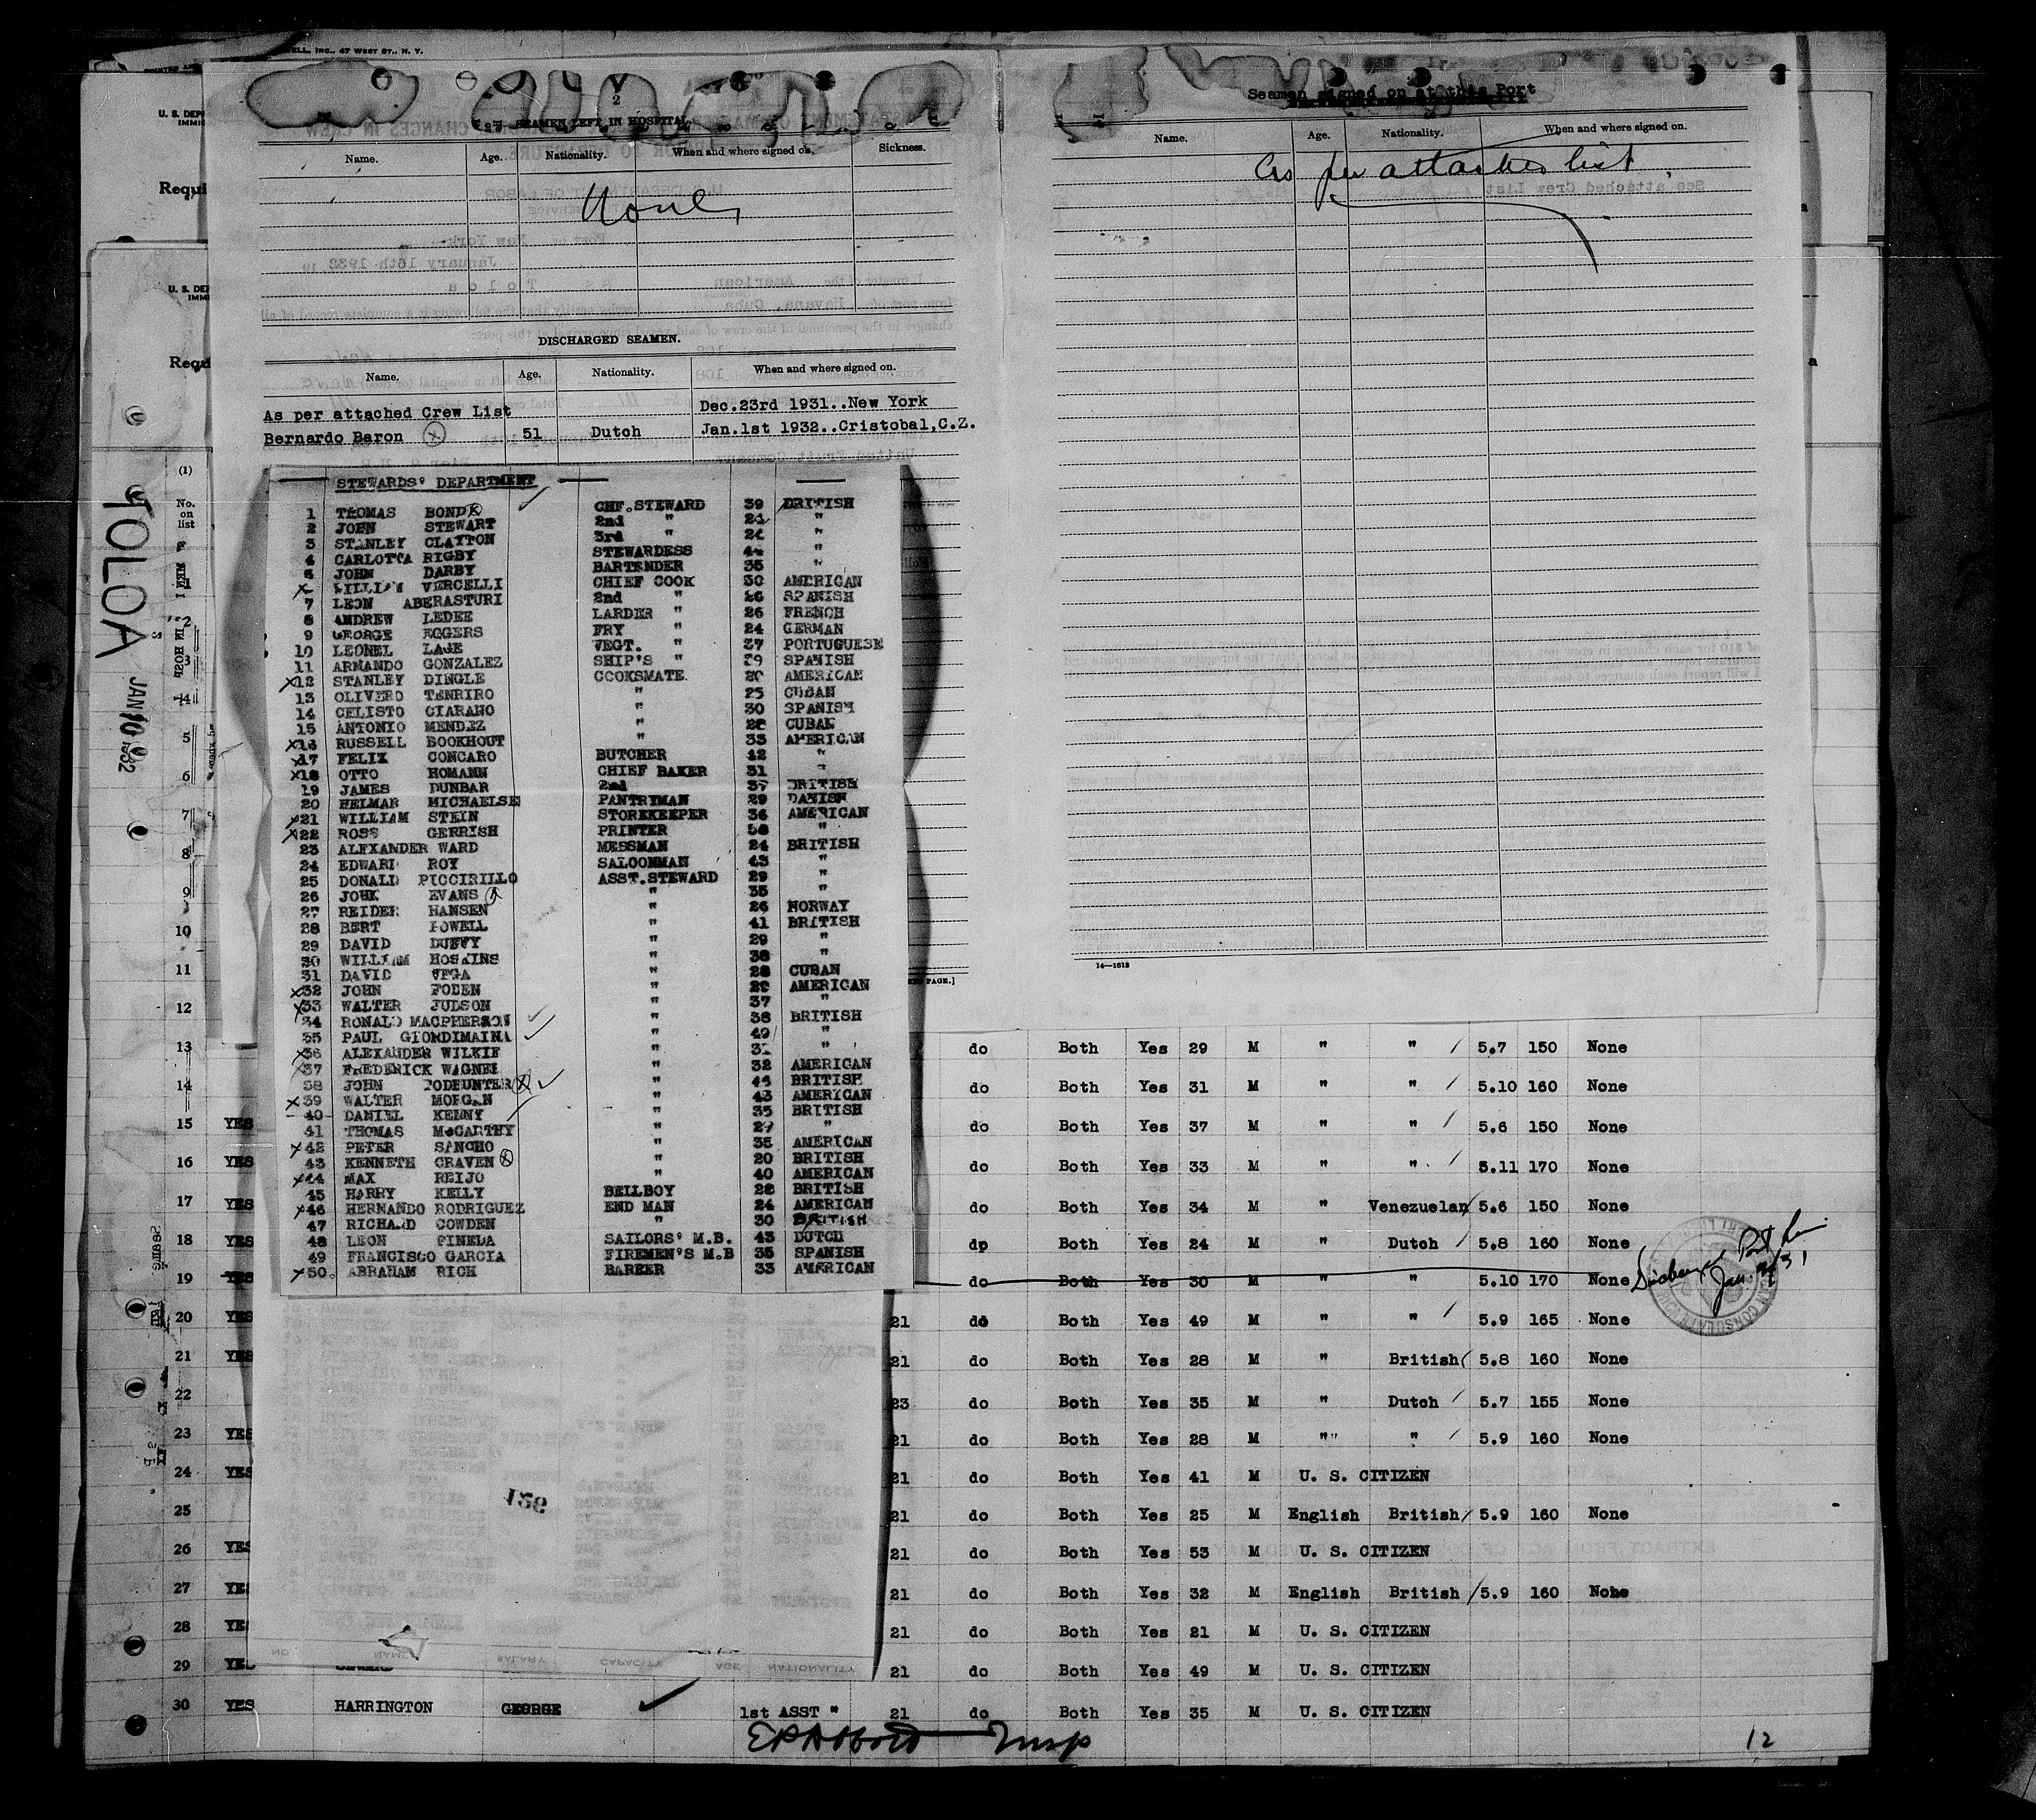 ELL, INC., 47 WEST ST., N. Y.
U. S. DEP
IMMI
Requi
U. S. DE
IMMI
Requ
TOLOA
JAN 1932
(1)
No.
on
list
2
SEAMEN LEFT IN HOSPITAL
Name. Age. Nationality. When and where signed on. Sickness.
None
DISCHARGED SEAMEN.
Name. Age. Nationality. When and where signed on.
As per attached Crew List Dec.23rd 1931..New York
Bernardo Baron 51 Dutch Jan.1st 1932..Cristobal,C.Z.
Seamen signed on at this Port
Name. Age. Nationality. When and where signed on.
As per attached list
14—1613
PAGE.]
STEWARDS' DEPARTMENT
1 THOMAS BOND CHF.STEWARD 39 BRITISH
2 JOHN STEWART 2nd " "
3 STANLEY CLAYTON 3rd " "
4 CARLOTTA RIGBY STEWARDESS 44 "
5 JOHN DARBY BARTENDER 35 "
WILLIAM VERCELLI CHIEF COOK 30 AMERICAN
7 LEON ABERASTURI 2nd " 26 SPANISH
8 ANDREW LEDEE LARDER " 26 FRENCH
9 GEORGE EGGERS FRY " 24 GERMAN
10 LEONEL LAJE VEGT. " 37 PORTUGUESE
11 ARMANDO GONZALEZ SHIP'S " 39 SPANISH
x12 STANLEY DINGLE COOKSMATE AMERICAN
13 OLIVERO TENRIRO " 25 CUBAN
14 CELISTO CIARANO " 30 SPANISH
15 ANTONIO MENDEZ " CUBAN
x16 RUSSELL BOOKHOUT " 33 AMERICAN
x17 FELIX CONCARO BUTCHER 42 "
x18 OTTO HOMANN CHIEF BAKER 31 "
19 JAMES DUNBAR 2nd 37 BRITISH
20 HELMAR MICHAELSE PANTRYMAN 29 DANISH
x21 WILLIAM STEIN STOREKEEPER 36 AMERICAN
x22 ROSS GERRISH PRINTER "
23 ALEXANDER WARD MESSMAN 24 BRITISH
24 EDWARD ROY SALOONMAN 43 "
25 DONALD PICCIRILLO ASST.STEWARD 29 "
26 JOHN EVANS " 35 "
27 REIDER HANSEN " 26 NORWAY
28 BERT POWELL " 41 BRITISH
29 DAVID DUFFY " 29 "
30 WILLIAM HOSKINS " 38 "
31 DAVID VEGA " 28 CUBAN
x32 JOHN FODEN " 29 AMERICAN
x33 WALTER JUDSON " 37 "
34 RONALD MACPHERSON " 38 BRITISH
35 PAUL GIORDIMAINA " 49 "
x36 ALEXANDER WILKIE " "
x37 FREDERICK WAGNEL " 32 AMERICAN
38 JOHN TODHUNTER " 44 BRITISH
x39 WALTER MORGAN " 43 AMERICAN
40 DANIEL KENNY " 35 BRITISH
41 THOMAS McCARTHY " 27 "
x42 PETER SANCHO " 35 AMERICAN
43 KENNETH CRAVEN " 20 BRITISH
x44 MAX REIJO " 40 AMERICAN
45 HARRY KELLY BELLBOY 22 BRITISH
x46 HERNANDO RODRIGUEZ END MAN 24 AMERICAN
47 RICHARD COWDEN " 30 BRITISH
48 LEON PINEDA SAILORS' M.B. 43 DUTCH
49 FRANCISCO GARCIA FIREMEN'S M.B 35 SPANISH
x50. ABRAHAM RICH BARBER 33 AMERICAN
159
13 do Both Yes 29 M " " 5.7 150 None
14 do Both Yes 31 M " " 5.10 160 None
15 YES do Both Yes 37 M " " 5.6 150 None
16 YES do Both Yes 33 M " " 5.11 170 None
17 YES do Both Yes 34 M " Venezuelan 5.6 150 None
18 YES dp Both Yes 24 M " Dutch 5.8 160 None
19 YES do Both Yes 30 M " " 5.10 170 None
20 YES 21 do Both Yes 49 M " " 5.9 165 None
21 YES 21 do Both Yes 28 M " British 5.8 160 None
22 23 do Both Yes 35 M " Dutch 5.7 155 None
23 YES 21 do Both Yes 28 M "" " 5.9 160 None
24 YES 21 do Both Yes 41 M U. S. CITIZEN
25 21 do Both Yes 25 M English British 5.9 160 None
26 YES 21 do Both Yes 53 M U. S. CITIZEN
27 YES 21 do Both Yes 32 M English British 5.9 160 None
28 YES 21 do Both Yes 21 M U. S. CITIZEN
29 YES 21 do Both Yes 49 M U. S. CITIZEN
30 YES HARRINGTON GEORGE 1st ASST " 21 do Both Yes 35 M U. S. CITIZEN
12